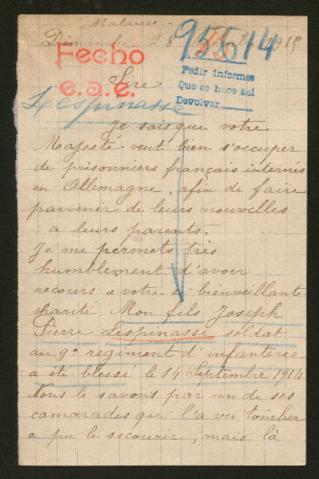 Malause -
Dimanche 28 1915
95614
Fecho
e.a.e.
Pedir informes
Que se hace así
Devolver
Sire
Lespinasse
Je sais que votre
Majesté veut bien s'occuper
de prisonniers français internés
en Allemagne, afin de faire
parvenir de leurs nouvelles
a leurs parents.
Je me permets très
humblement d'avoir
recours a votre si bienveillante
charité Mon fils Joseph
Pierre Lespinasse soldat
au 9e régiment d'infanterie
a été blessé le 14 Septembre 1914
Nous le savons par un de ses
camarades qui l'a vu tomber
a pu le secourir, mais là